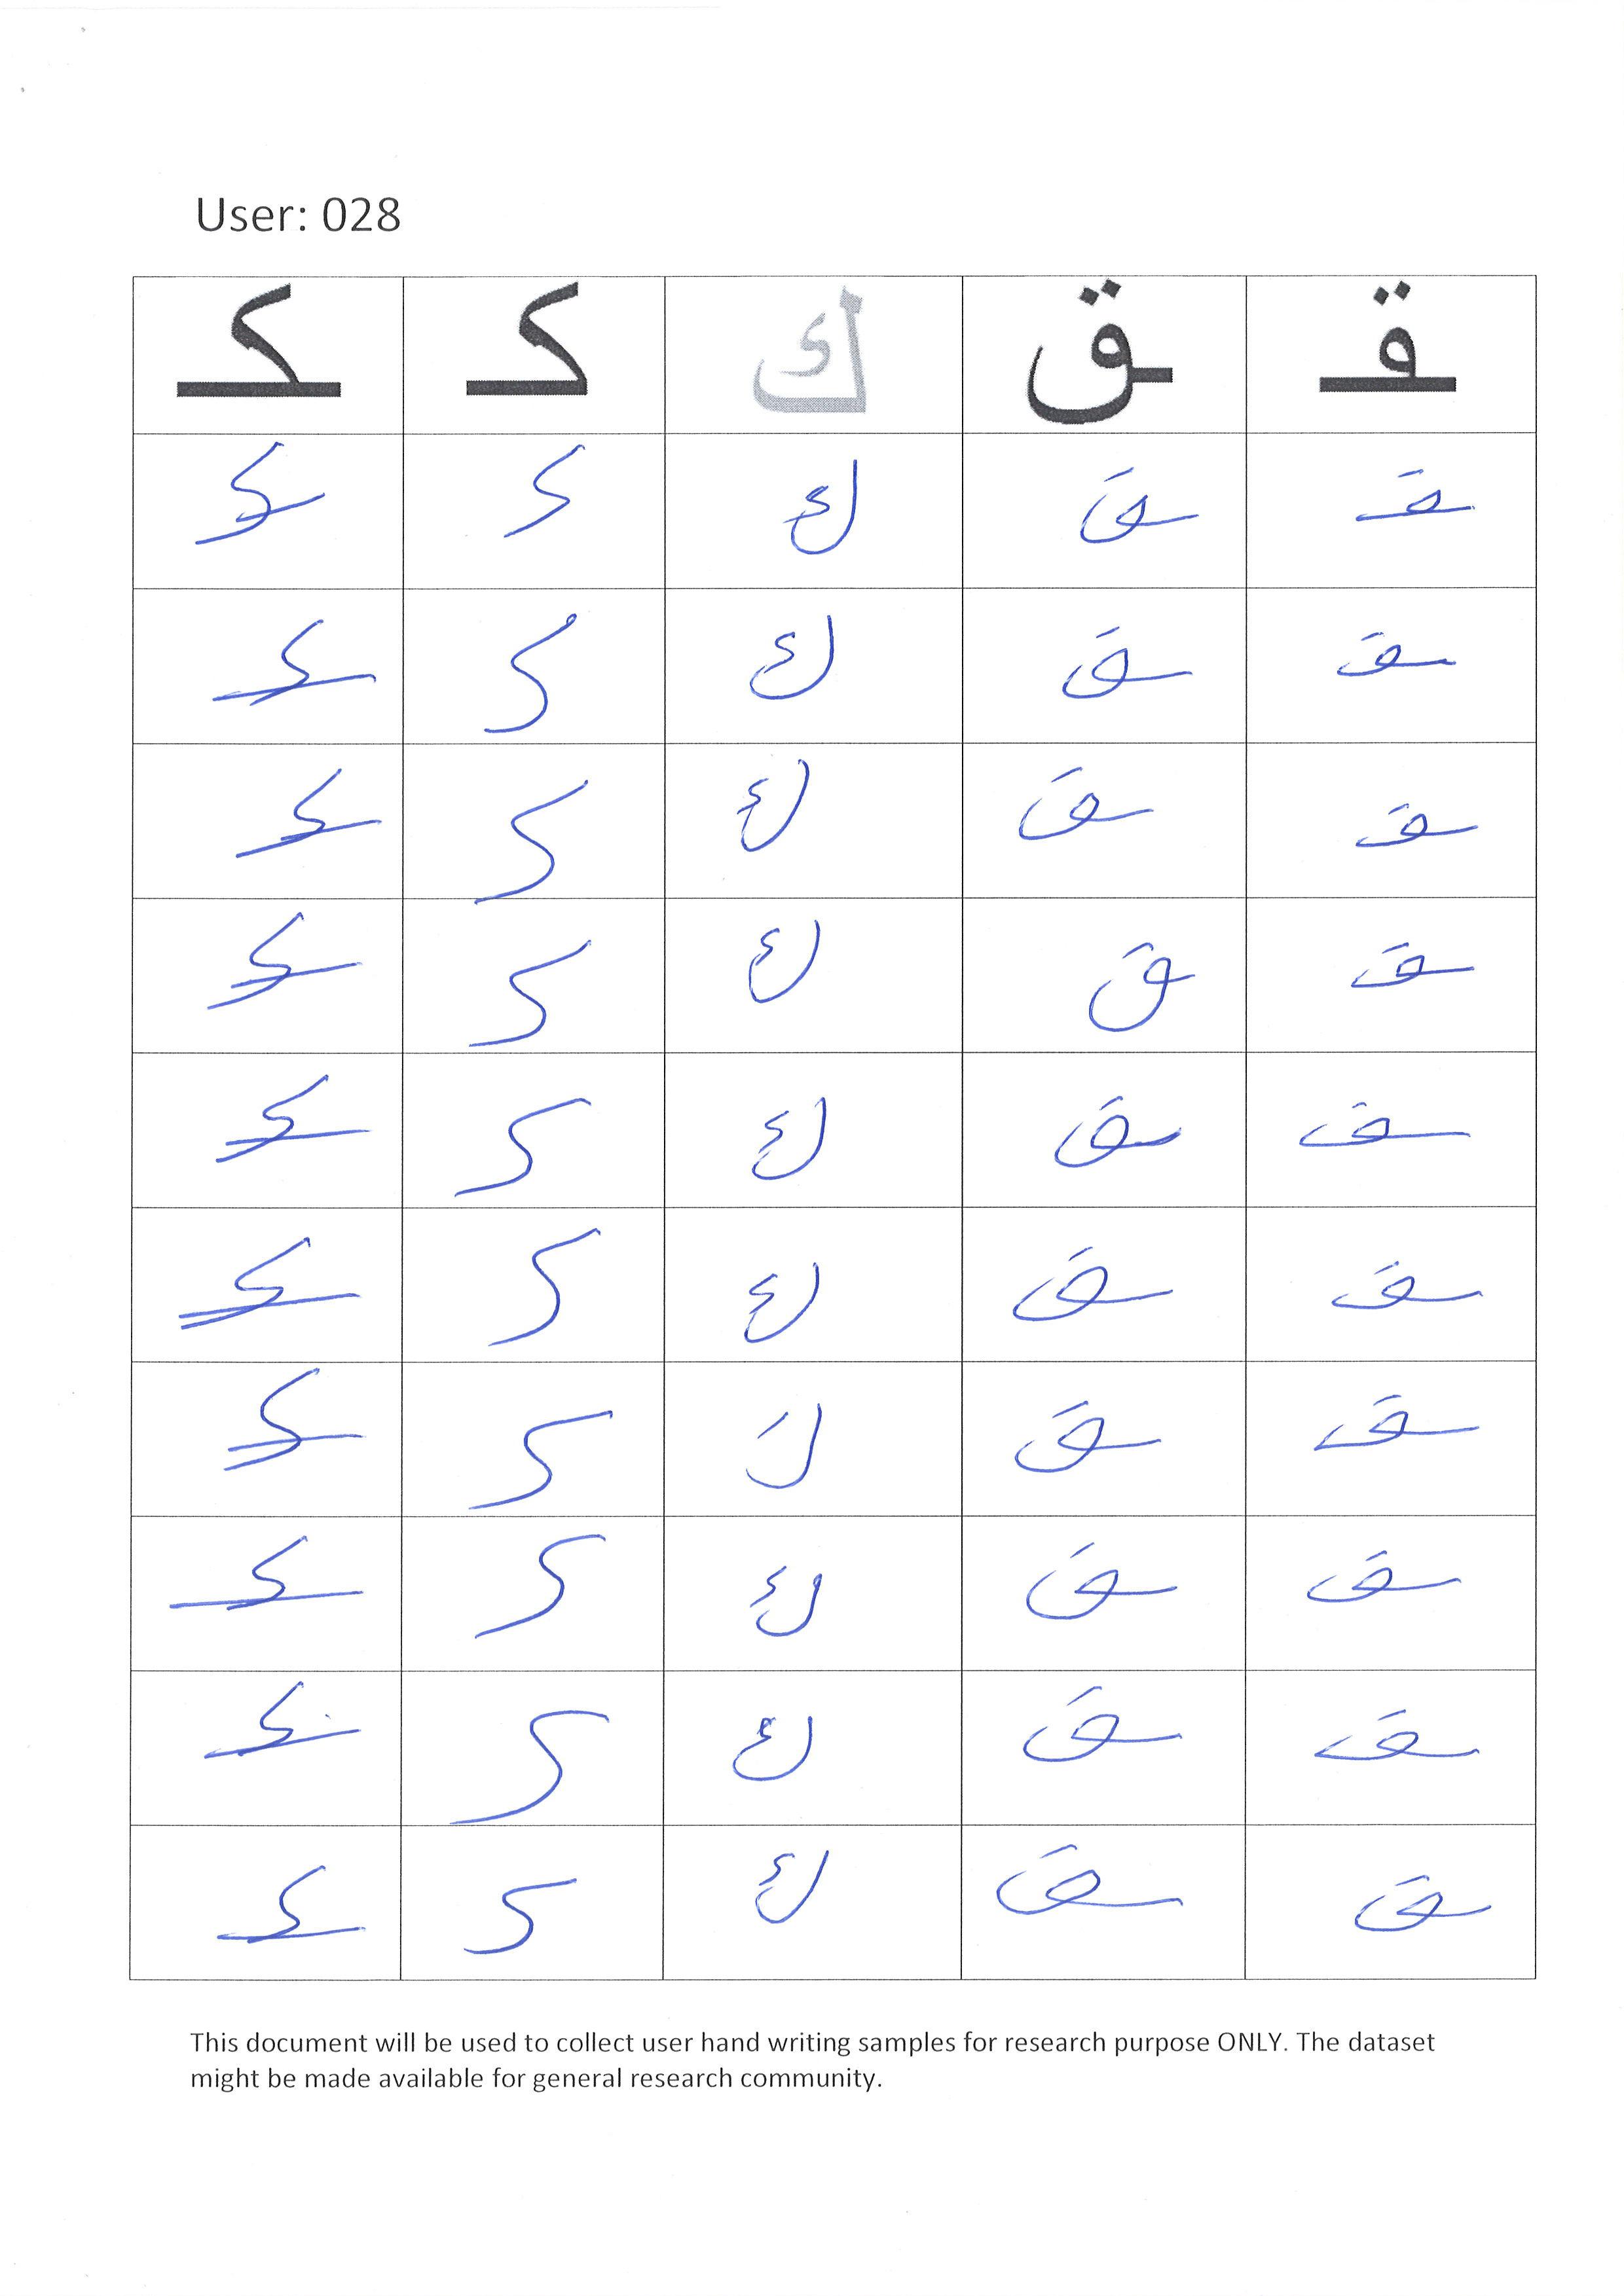 User: 028
ـقـ ـق ك كـ ـكـ
ـقـ ـق ك كـ ـكـ
ـقـ ـق ك كـ ـكـ
ـقـ ـق ك كـ ـكـ
ـقـ ـق ك كـ ـكـ
ـقـ ـق ك كـ ـكـ
ـقـ ـق ك كـ ـكـ
ـقـ ـق ك كـ ـكـ
ـقـ ـق ك كـ ـكـ
ـقـ ـق ك كـ ـكـ
ـقـ ـق ك كـ ـكـ
This document will be used to collect user hand writing samples for research purpose ONLY. The dataset
might be made available for general research community.